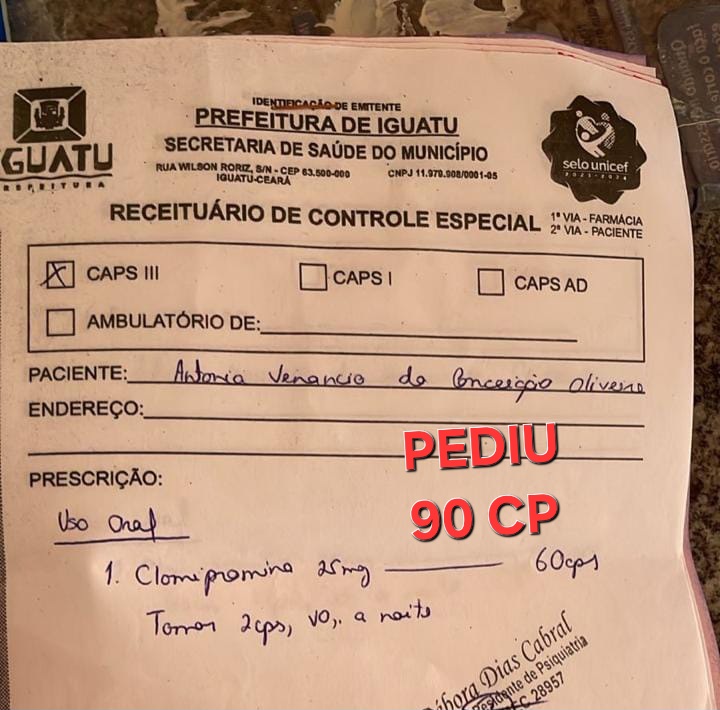 IDENTIFICAÇÃO DE EMITENTE
PREFEITURA DE IGUATU
SECRETARIA DE SAÚDE DO MUNICÍPIO
RUA WILSON RORIZ, S/N - CEP 63.500-000 CNPJ 11.979.908/0001-05
IGUATU-CEARÁ
IGUATU
PREFEITURA
selo unicef
2021-2024
RECEITUÁRIO DE CONTROLE ESPECIAL
1ª VIA - FARMÁCIA
2ª VIA - PACIENTE
X CAPS III CAPS I CAPS AD
AMBULATÓRIO DE:
PACIENTE: Antonia Venancio da Conceição Oliveira
ENDEREÇO:
PEDIU
90 CP
PRESCRIÇÃO:
Uso Oral
1. Clomipramina 25mg 60cps
Tomar 2cps, VO, a noite
Dias Cabral
de Psiquiatria
28957